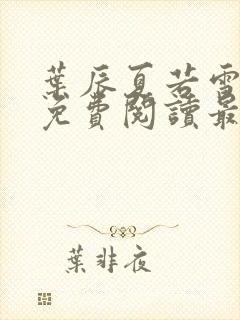 葉辰夏若雪
免費閱讀最
葉非夜